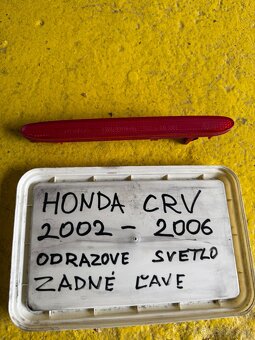 HONDA CRV
2002 - 2006
ODRAZOVE SVETLO
ZADNÉ ĽAVE